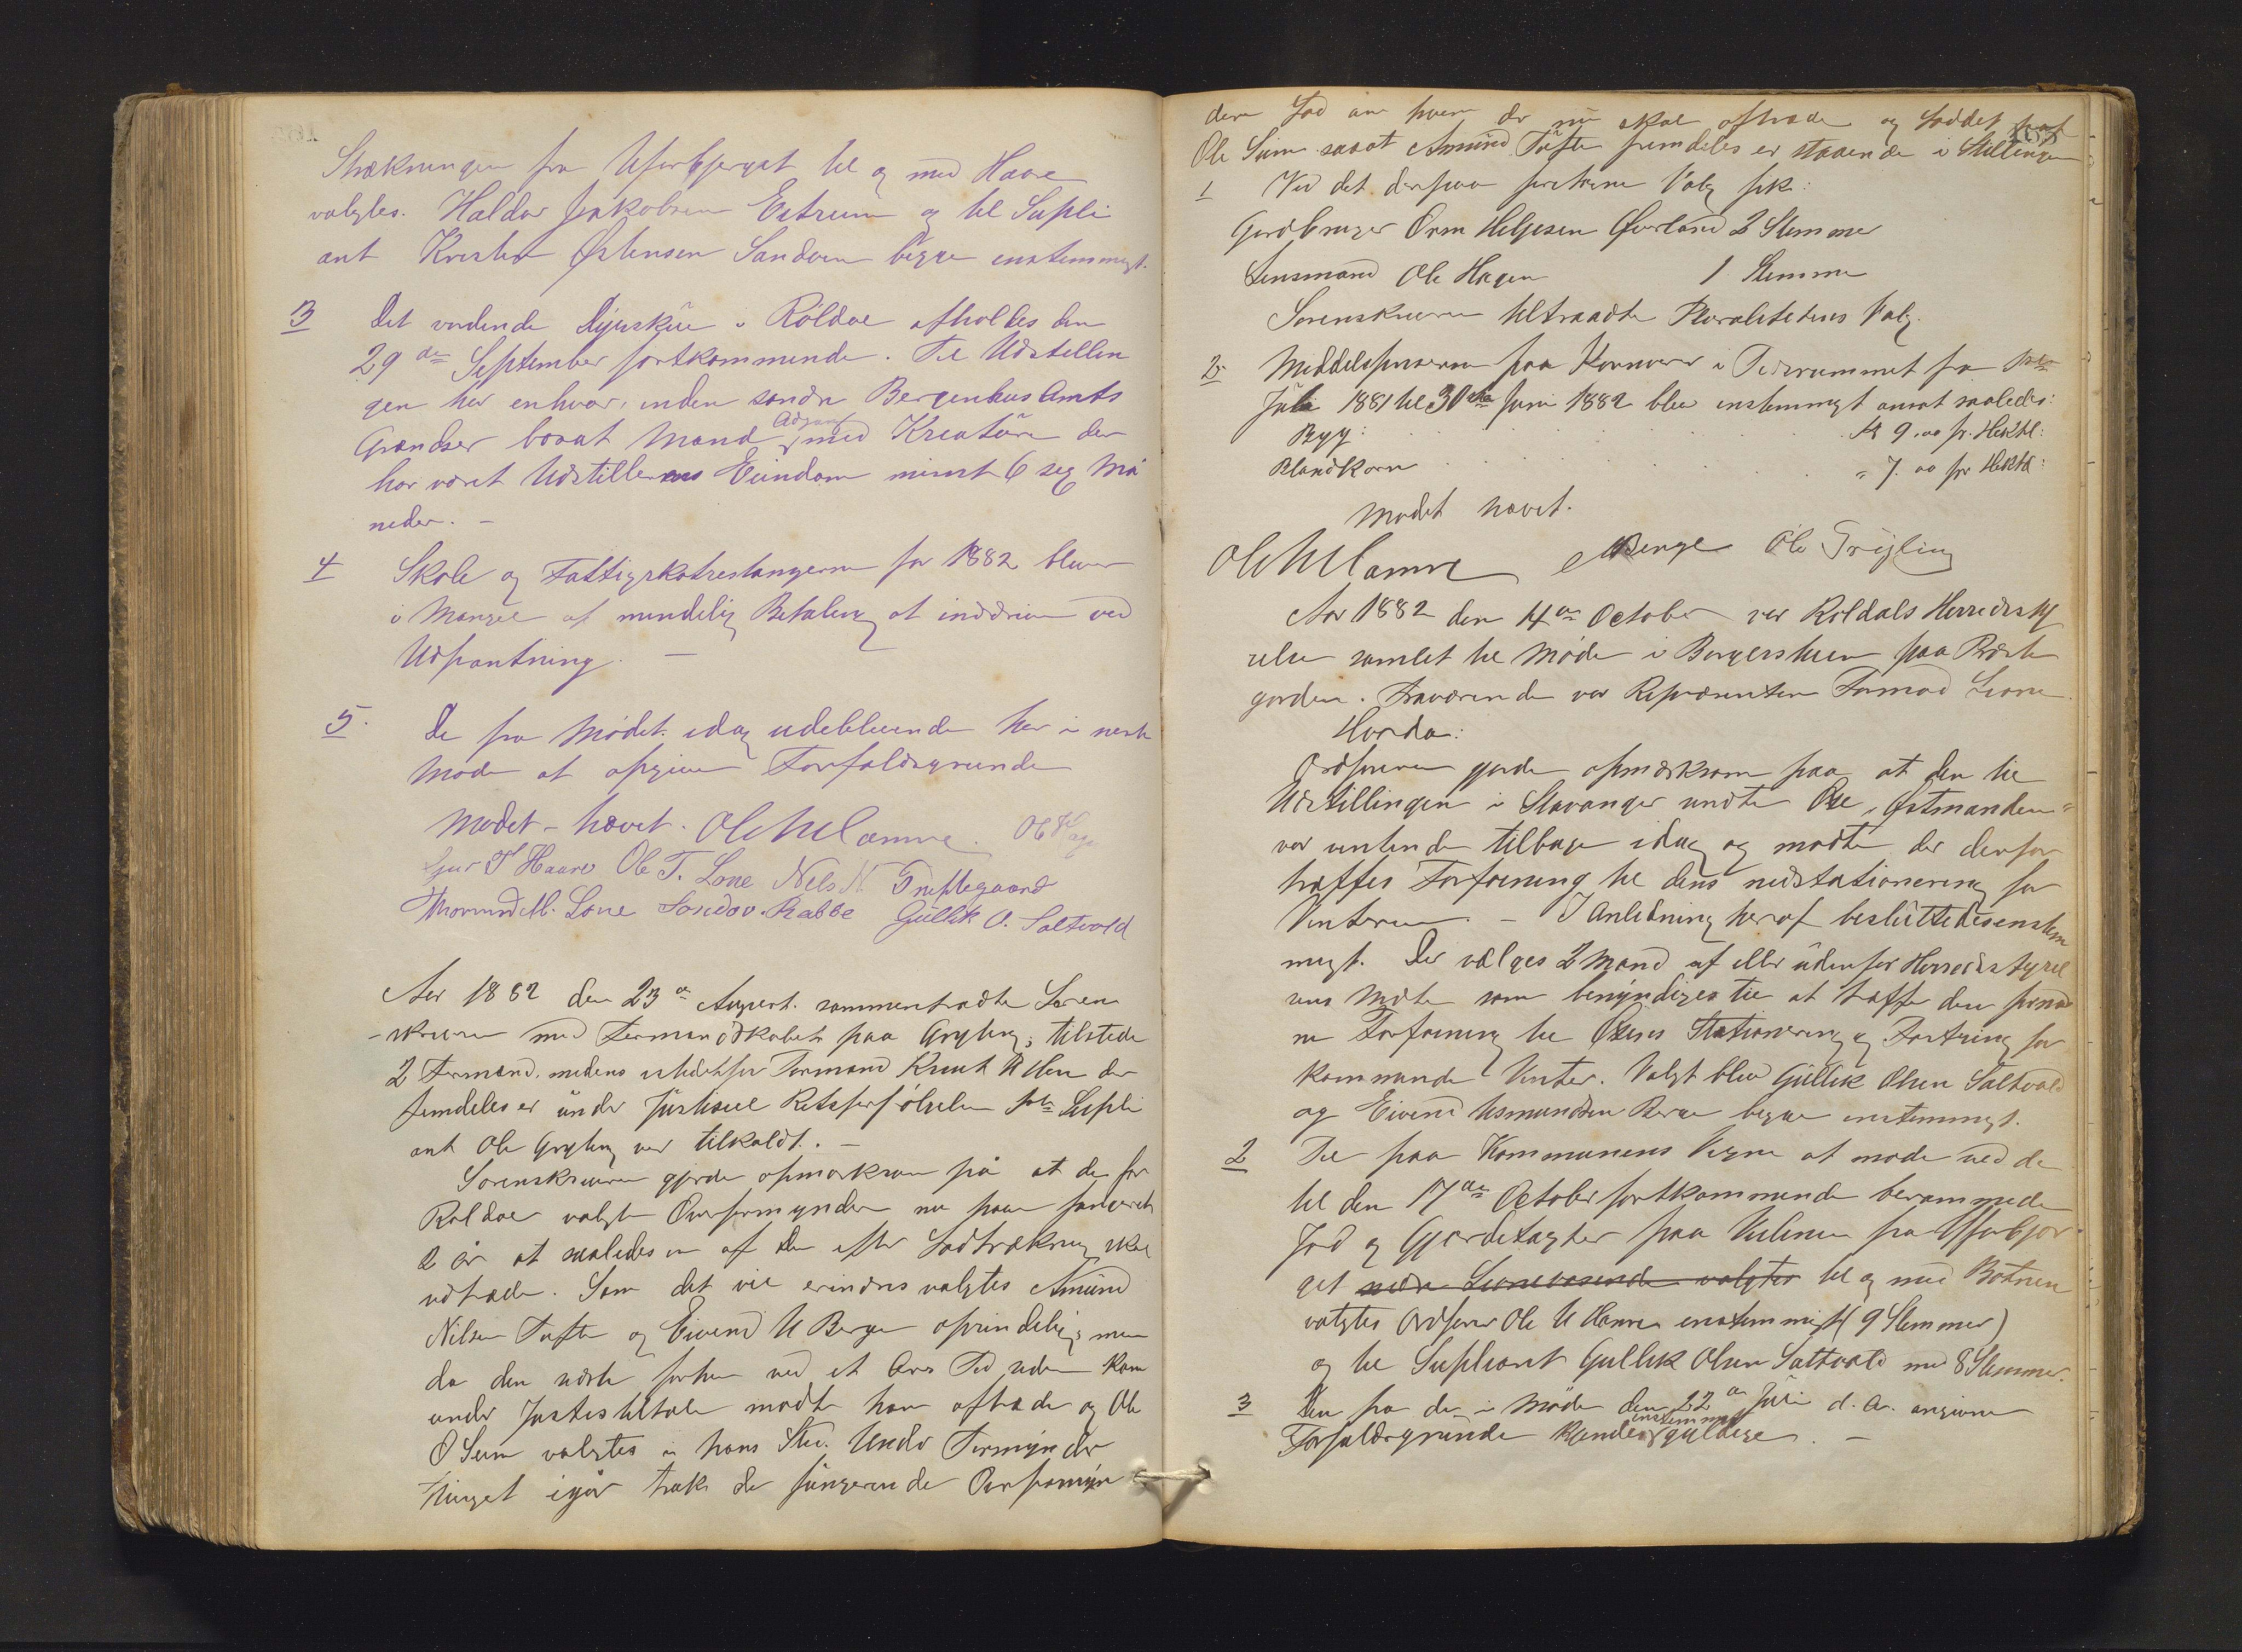 Strækningen fra Uforbjerget til og med Haare
valgtes. Haldor Jakobsen Eitrum og til Supli
ant Krister Østensen Sandven begge enstemmigt.
3 Det vordende Dyrskue i Röldal afholdes den
29de September førstkommende. Til Udstillin
gen har enhver, inden søndre Bergenhus Amts
Grændser bosat Mand Adgang med Kreature der
har været Udstillerens Eiendom minst 6 seg Må
neder. -
4 Skole og Fattigskatrestangerne for 1882 bliver
i Mangel af mindelig Betaling at inddrive ved
Udpantning. -
5. De fra Mødet idag udeblivende har i neste
Møde at opgive Forfaldsgrunde
Mødet hævet. Ole U Hamre. O Hage
Gjur T Haare Ole T. Lone Nels N. Gryttegaard
Thormod M. Lone Sondov. Rabbe Gullik O. Saltvold
Aar 1882 den 23de August. sammentraadte Soren
-skriveren med Formandskabet paa Gryting; tilstede
2 Formænd. medens istedetfor Formand Knut der
fremdeles er under Justisiel Retsforfölelse 1ste Supli
ant Ole Gryting var tilkaldt. -
Sorenskriveren gjorde opmærksom på at de for
Røldal valgte Overformyndere nu have fungeret
2 år at saaledes en af dem efter Lodtrækning skal
udtræde. Som det vil erindres valgtes Amund
Nilsen Tufte og Eivend U Berge oprindelig; men
da den sidste forhen ved et Aars Tid siden kom
under Justistiltale maatte han aftræde og Ole
O Seim valgtes i hans Sted. Under Formynder
thinget igår trak de fungerende Overformyn
dere Lod om hvem der nu skal aftræde og Loddet traf
Ole Seim saaat Amund Tufte fremdeles er staaende i Stillingen
1 Ved det derpaa foretagne Valg fik:
Gardbruger Orm Helgesen Øverland 2 Stemmer
Lensmand Ole Hagen 1 Stemme
Sorenskriveren tiltraadte Pluralitetens Valg.
2. Middelspriserne paa Kornvarer i Tidsrummet fra 1ste
Juli 1881 til 30te Juni 1882 blev enstemmigt ansat saaledes:
Byg: Kr 9.00 pr. Hektl:
Blandkorn " 7.00 pr Hektl:
Mødet hævet.
Ole U Hamre Berge Ole Gryting
Aar 1882 den 4de October var Röldals Herredssty
relse samlet til Möde i Borgerstuen paa Præste
gorden. Fraværende var Repræsentan Tormod Lione
Horda:
Ordføreren gjorde opmærksom paa at den til
Udstillingen i Stavanger sendte Oxe "Østmanden"
var ventende tilbage idag og maatte der derfor
træffes Forføining til dens nedstationering for
Vinteren. - I Anledning heraf besluttedes enstem
migt. Der vælges 2 Mand af eller udenfor Herredsstyrel
sens Midte som bemyndiges til at træffe den fornød
ne Forføining til Oxens Stationering og Fostring for
kommende Vinter. Valgt blev Gullik Olsen Saltvold
og Eivend Asmundsen Berge begge enstemmigt.
2 Til paa Kommunens Vegne at møde ved de
til den 17de October førstkommende berammede
Jord og Gjerdetagter paa Veilinien fra Uforbjer
get til og med Botnen
valgtes Ordfører Ole U Hamre enstemmigt (9 Stemmer)
og til Supleant Gullik Olsen Saltvold med 8 Stemmer.
3 Den fra de i Möde den 22de Juli d. A. angivne
Forfaldsgrunde kjendes enstemmigt gyldige. -